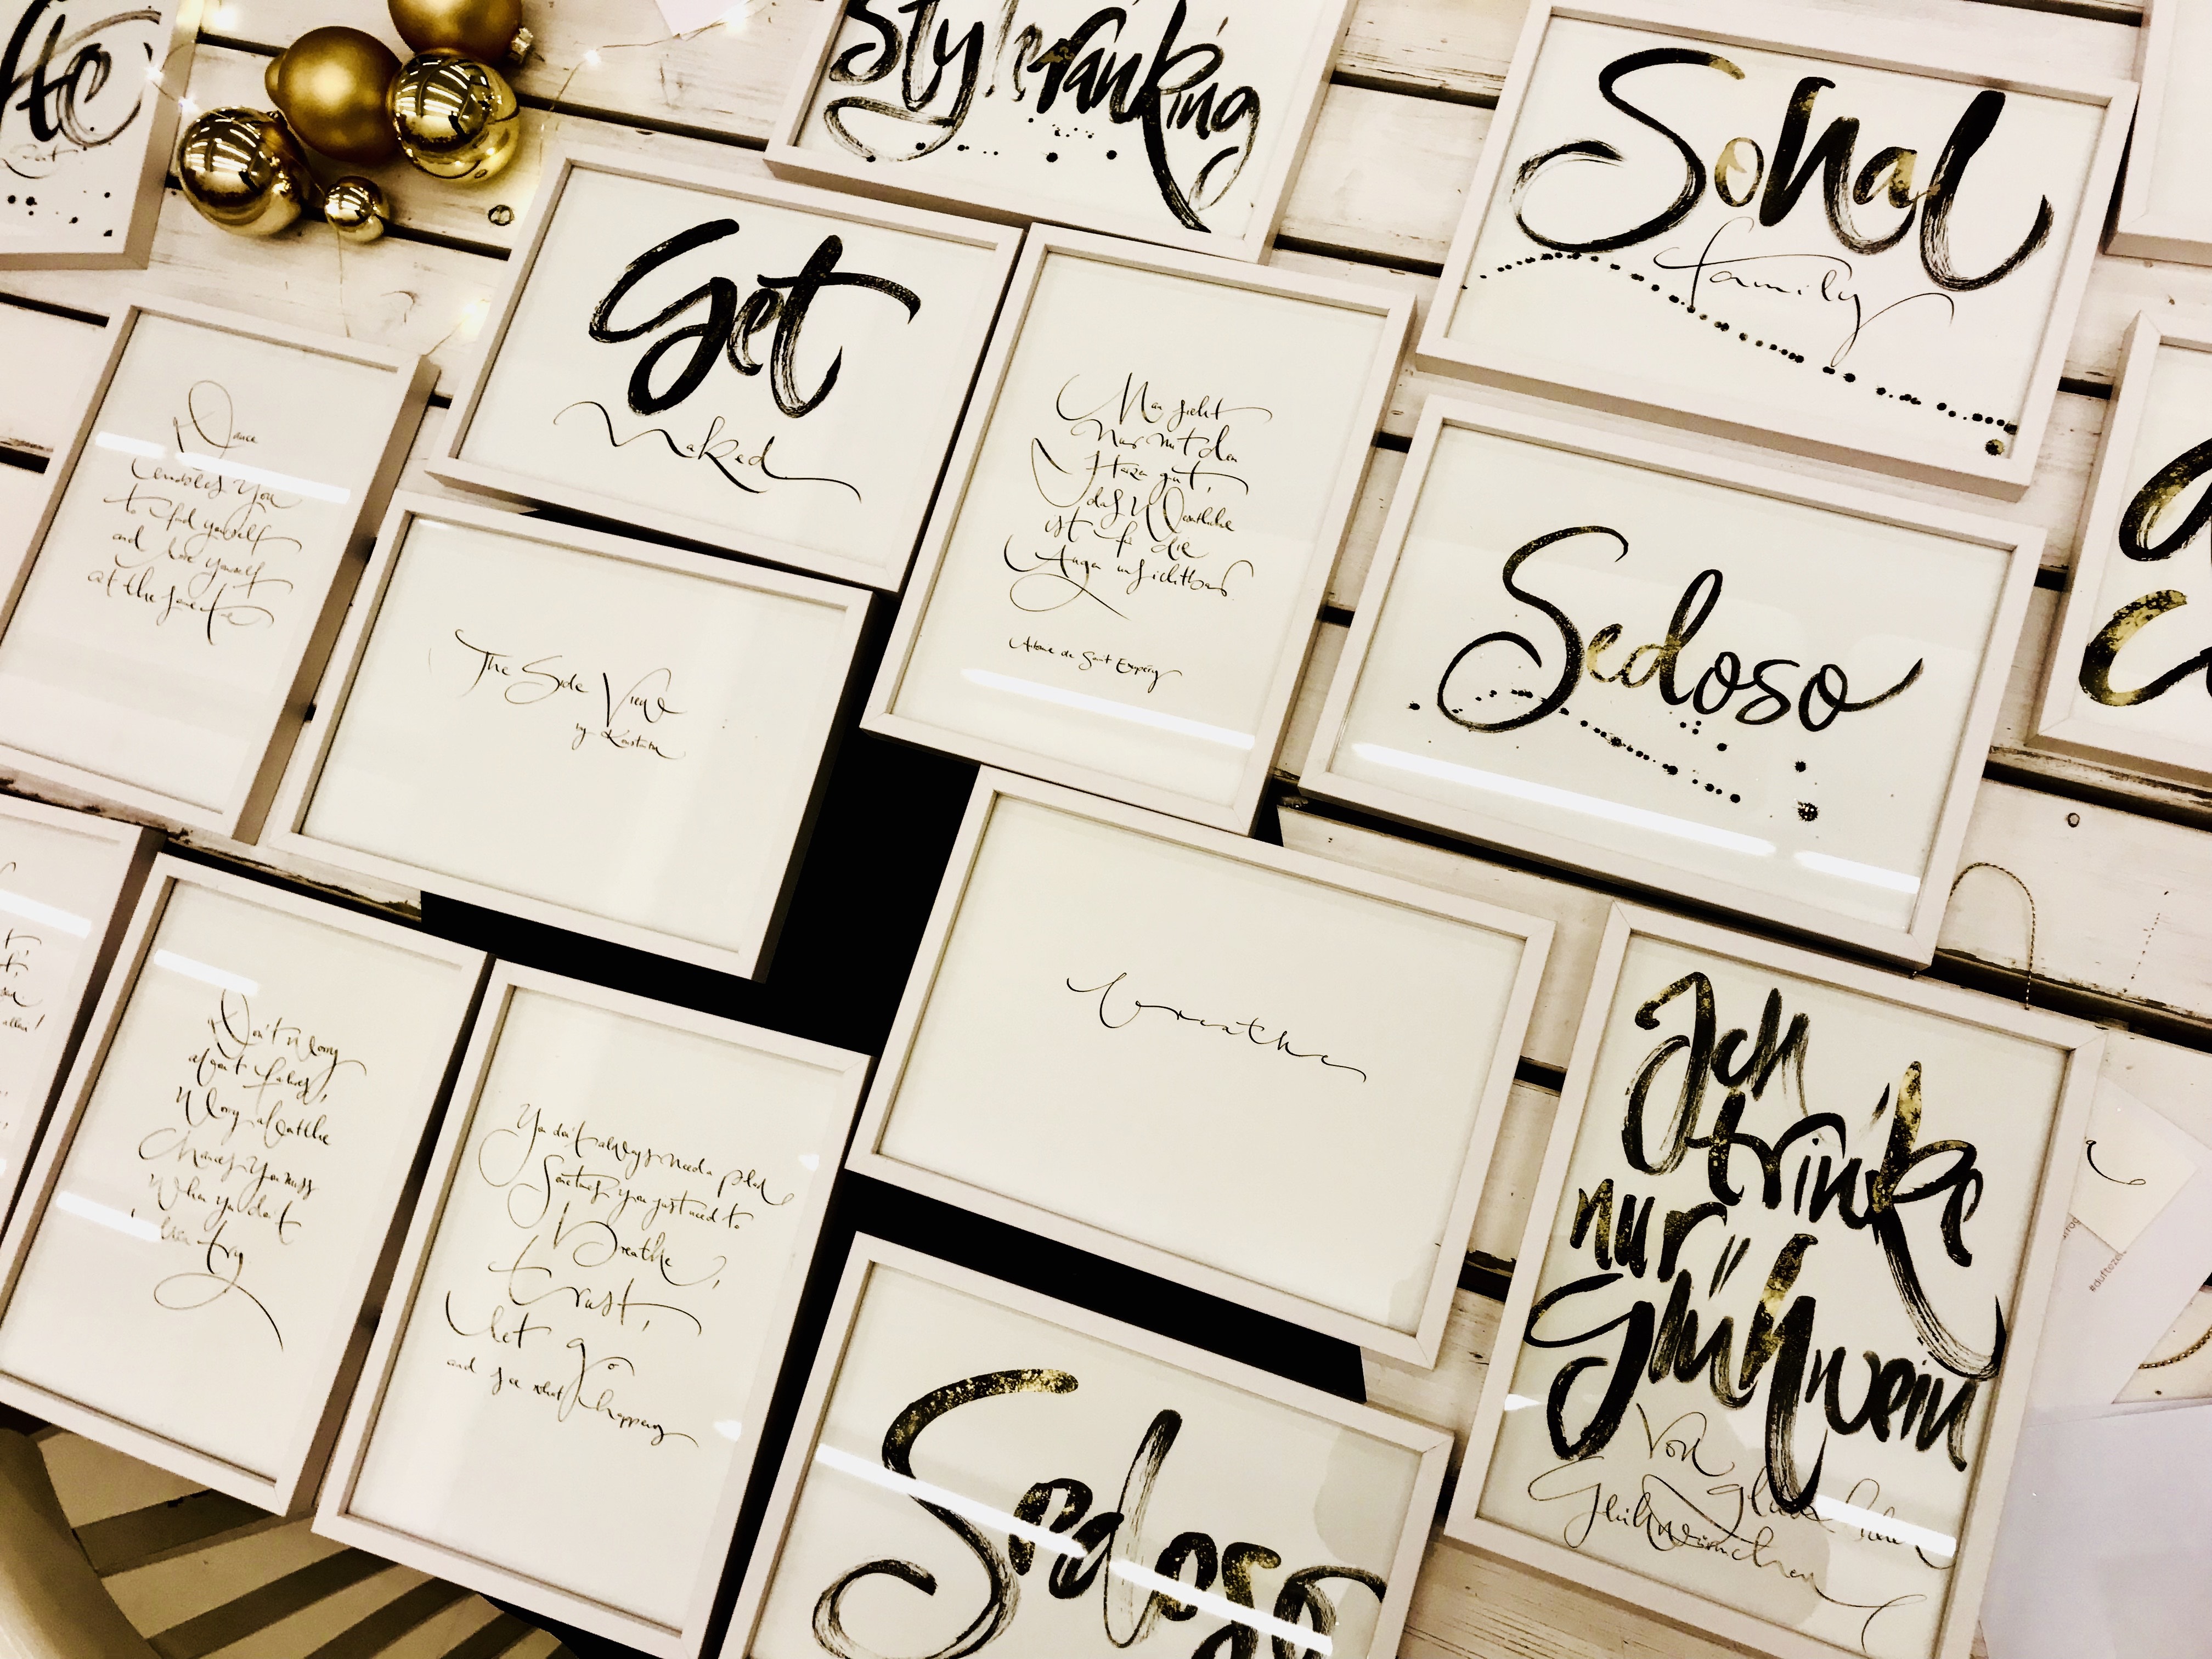 Styleranking
Sohal
family
Get
Naked
Man sieht
nur mit dem
Herzen gut,
das Wesentliche
ist für die
Augen unsichtbar
Antoine de Saint Exupéry
Sedoso
Dance
enables you
to find yourself
and lose yourself
at the same time
The Side View
by
breathe
Don't worry
about failures,
Worry about the
Chances you miss
When you don't
even try
You don't always need a plan
Sometimes you just need to
Breathe,
trust,
let go
and see what happens
Ich
trinke
nur
Glühwein
Von
Glühweinchen
Sedoso
allein!
#duftezei